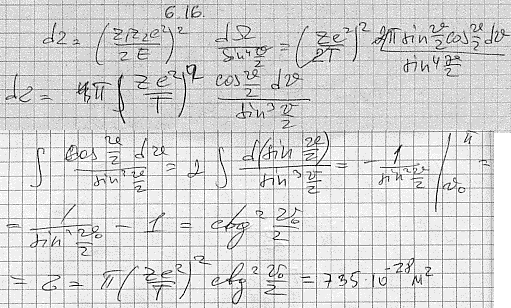 6.16.
d2 = (z1z2e²/2E)² dΩ/sin⁴ϑ/2 = (ze²/2T)² 2π sin ϑ/2 cos ϑ/2 dϑ / sin⁴ ϑ/2
d2 = π (ze²/T)² cos ϑ/2 dϑ / sin³ ϑ/2
∫ cos ϑ/2 dϑ / sin³ ϑ/2 = 2 ∫ d(sin ϑ/2) / sin³ ϑ/2 = - 1/sin² ϑ/2 |π ϑ₀ =
= 1/sin² ϑ₀/2 - 1 = ctg² ϑ₀/2
= 2 = π (ze²/T)² ctg² ϑ₀/2 = 735·10⁻²⁸ м²